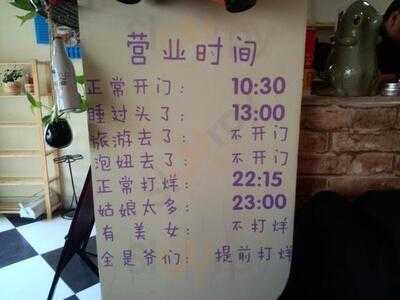 营业时间
正常开门： 10:30
睡过头了： 13:00
旅游去了： 不开门
泡妞去了： 不开门
正常打烊： 22:15
姑娘太多： 23:00
有美女： 不打烊
全是爷们： 提前打烊